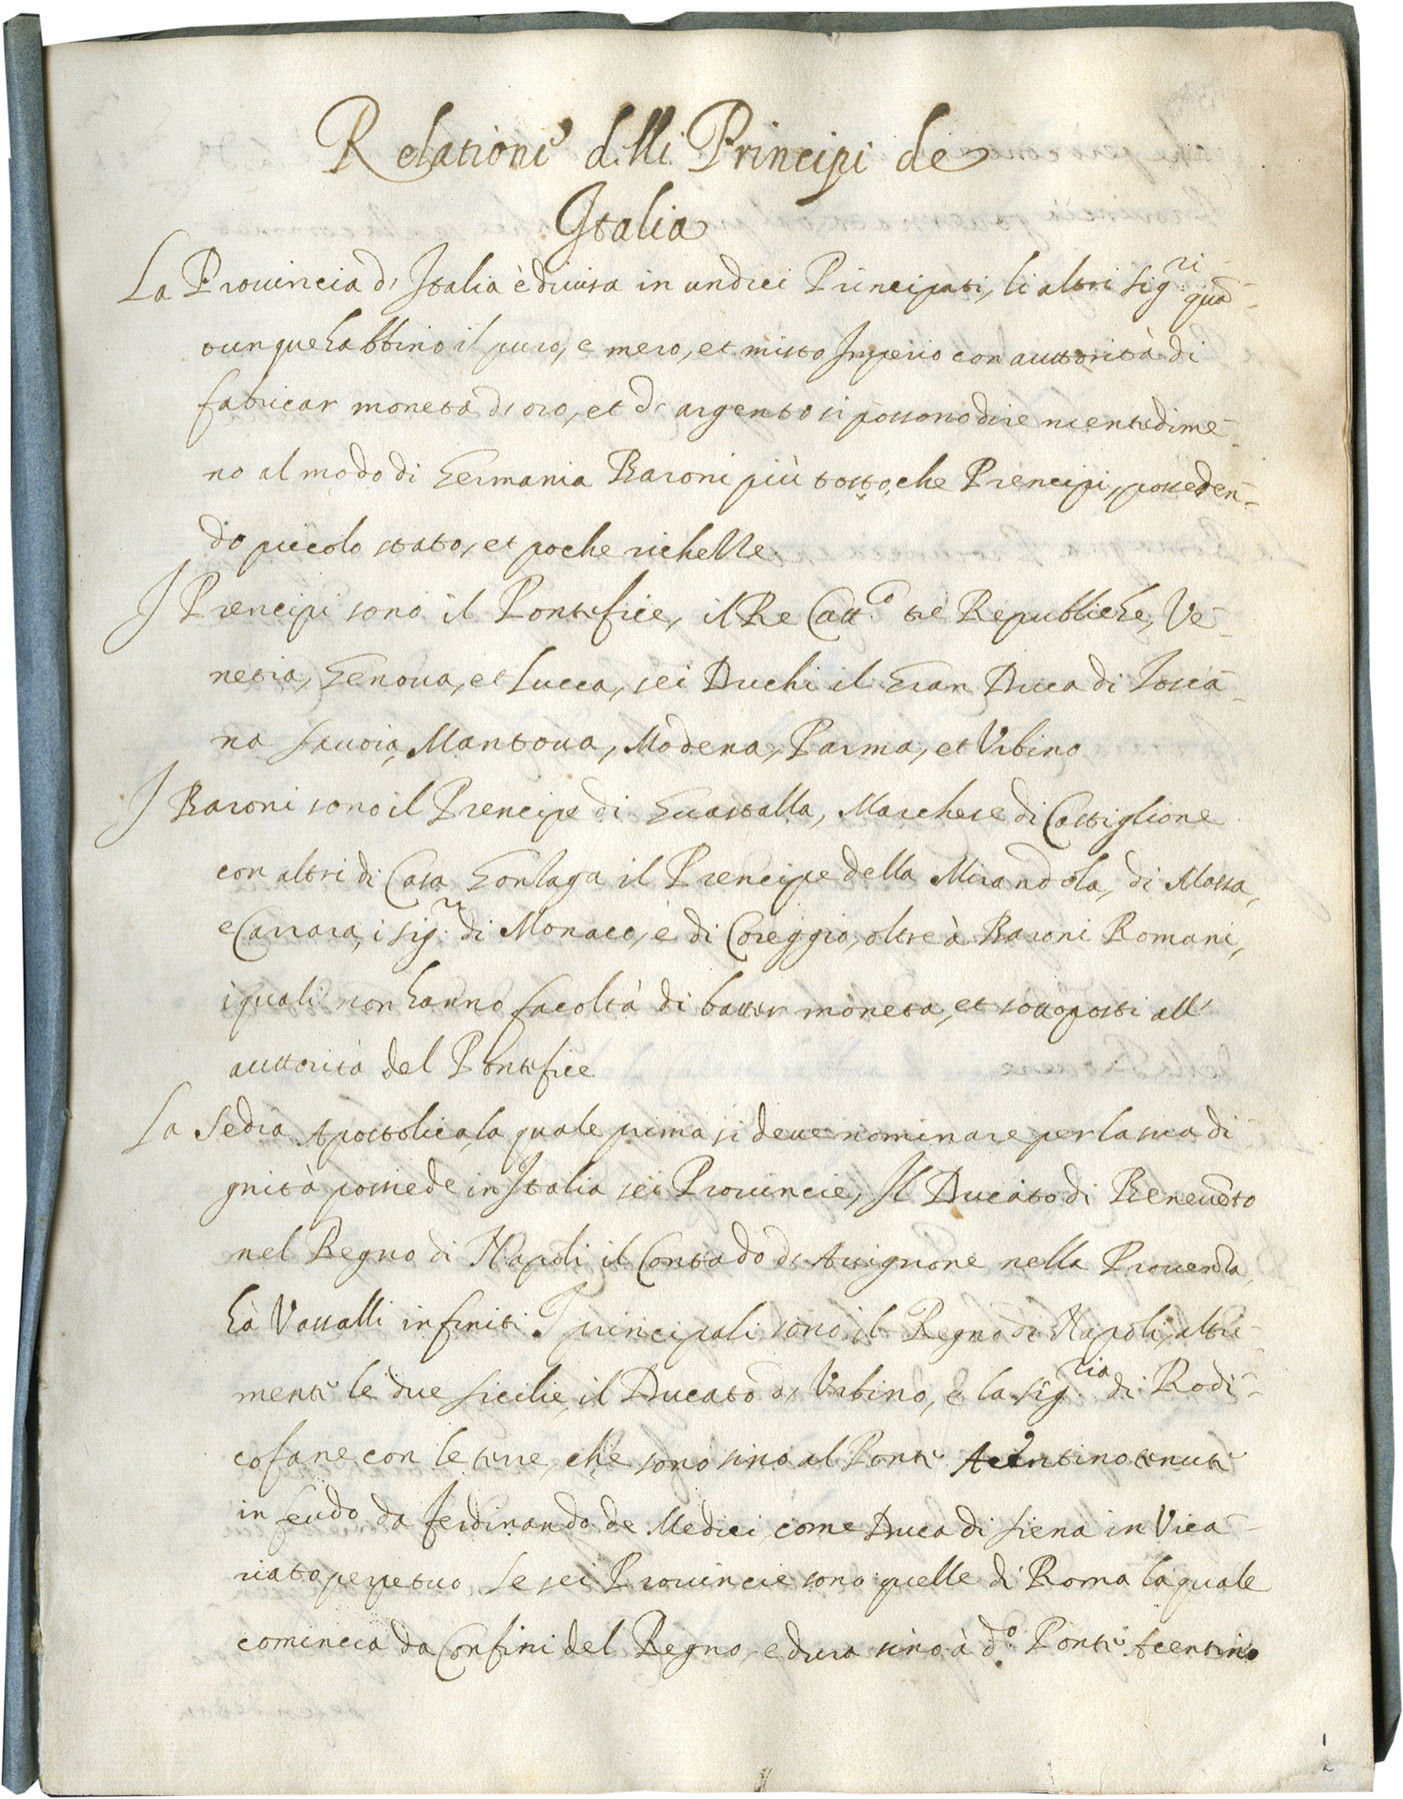 Relatione delli Principi de
Italia
La Prouincia di Italia è diuisa in undici Principati, li altri sig.ri quan-
tunque habbino il puro, e mero, et misto Imperio con auttorità di
fabricar moneta di oro, et di argento si possono dire nientedime-
no al modo di Germania Baroni più tosto, che Prencipi, posseden-
do piccolo stato, et poche richezze.
I Prencipi sono il Pontefice, il Re Catt.co tre Republiche, Ve-
netia, Genoua, et Lucca, sei Duchi il Gran Duca di Tosca-
na Sauoia, Mantoua, Modena, Parma, et Vrbino
I Baroni sono il Prencipe di Guastalla, Marchese di Castiglione
con altri di Casa Gonzaga il Prencipe della Mirandola, di Massa,
e Carrara, i sig.ri di Monaco, e di Coreggio, oltre à Baroni Romani,
i quali non hanno facoltà di batter moneta, et sottoposti all'
auttorità del Pontefice
La Sedia Apostolica, la quale prima si deue nominare per la sua di
gnità possiede in Italia sei Prouincie, Il Ducato di Beneuẽto
nel Regno di Napoli il Contado di Auignone nella Prouenza
hà Vassalli infiniti I principali sono il Regno di Napoli, altri-
menti le due sicilie, il Ducato di Vrbino, e la sig.ria di Radi-
cofane con le terre, che sono sino al Ponte Acentino tenute
in feudo da Ferdinando de Medici come Duca di Siena in Vica-
riato perpetuo Le sei Prouincie sono quelle di Roma la quale
comincia da Confini del Regno, e dura sino à d.o Ponte Acentino
1
2